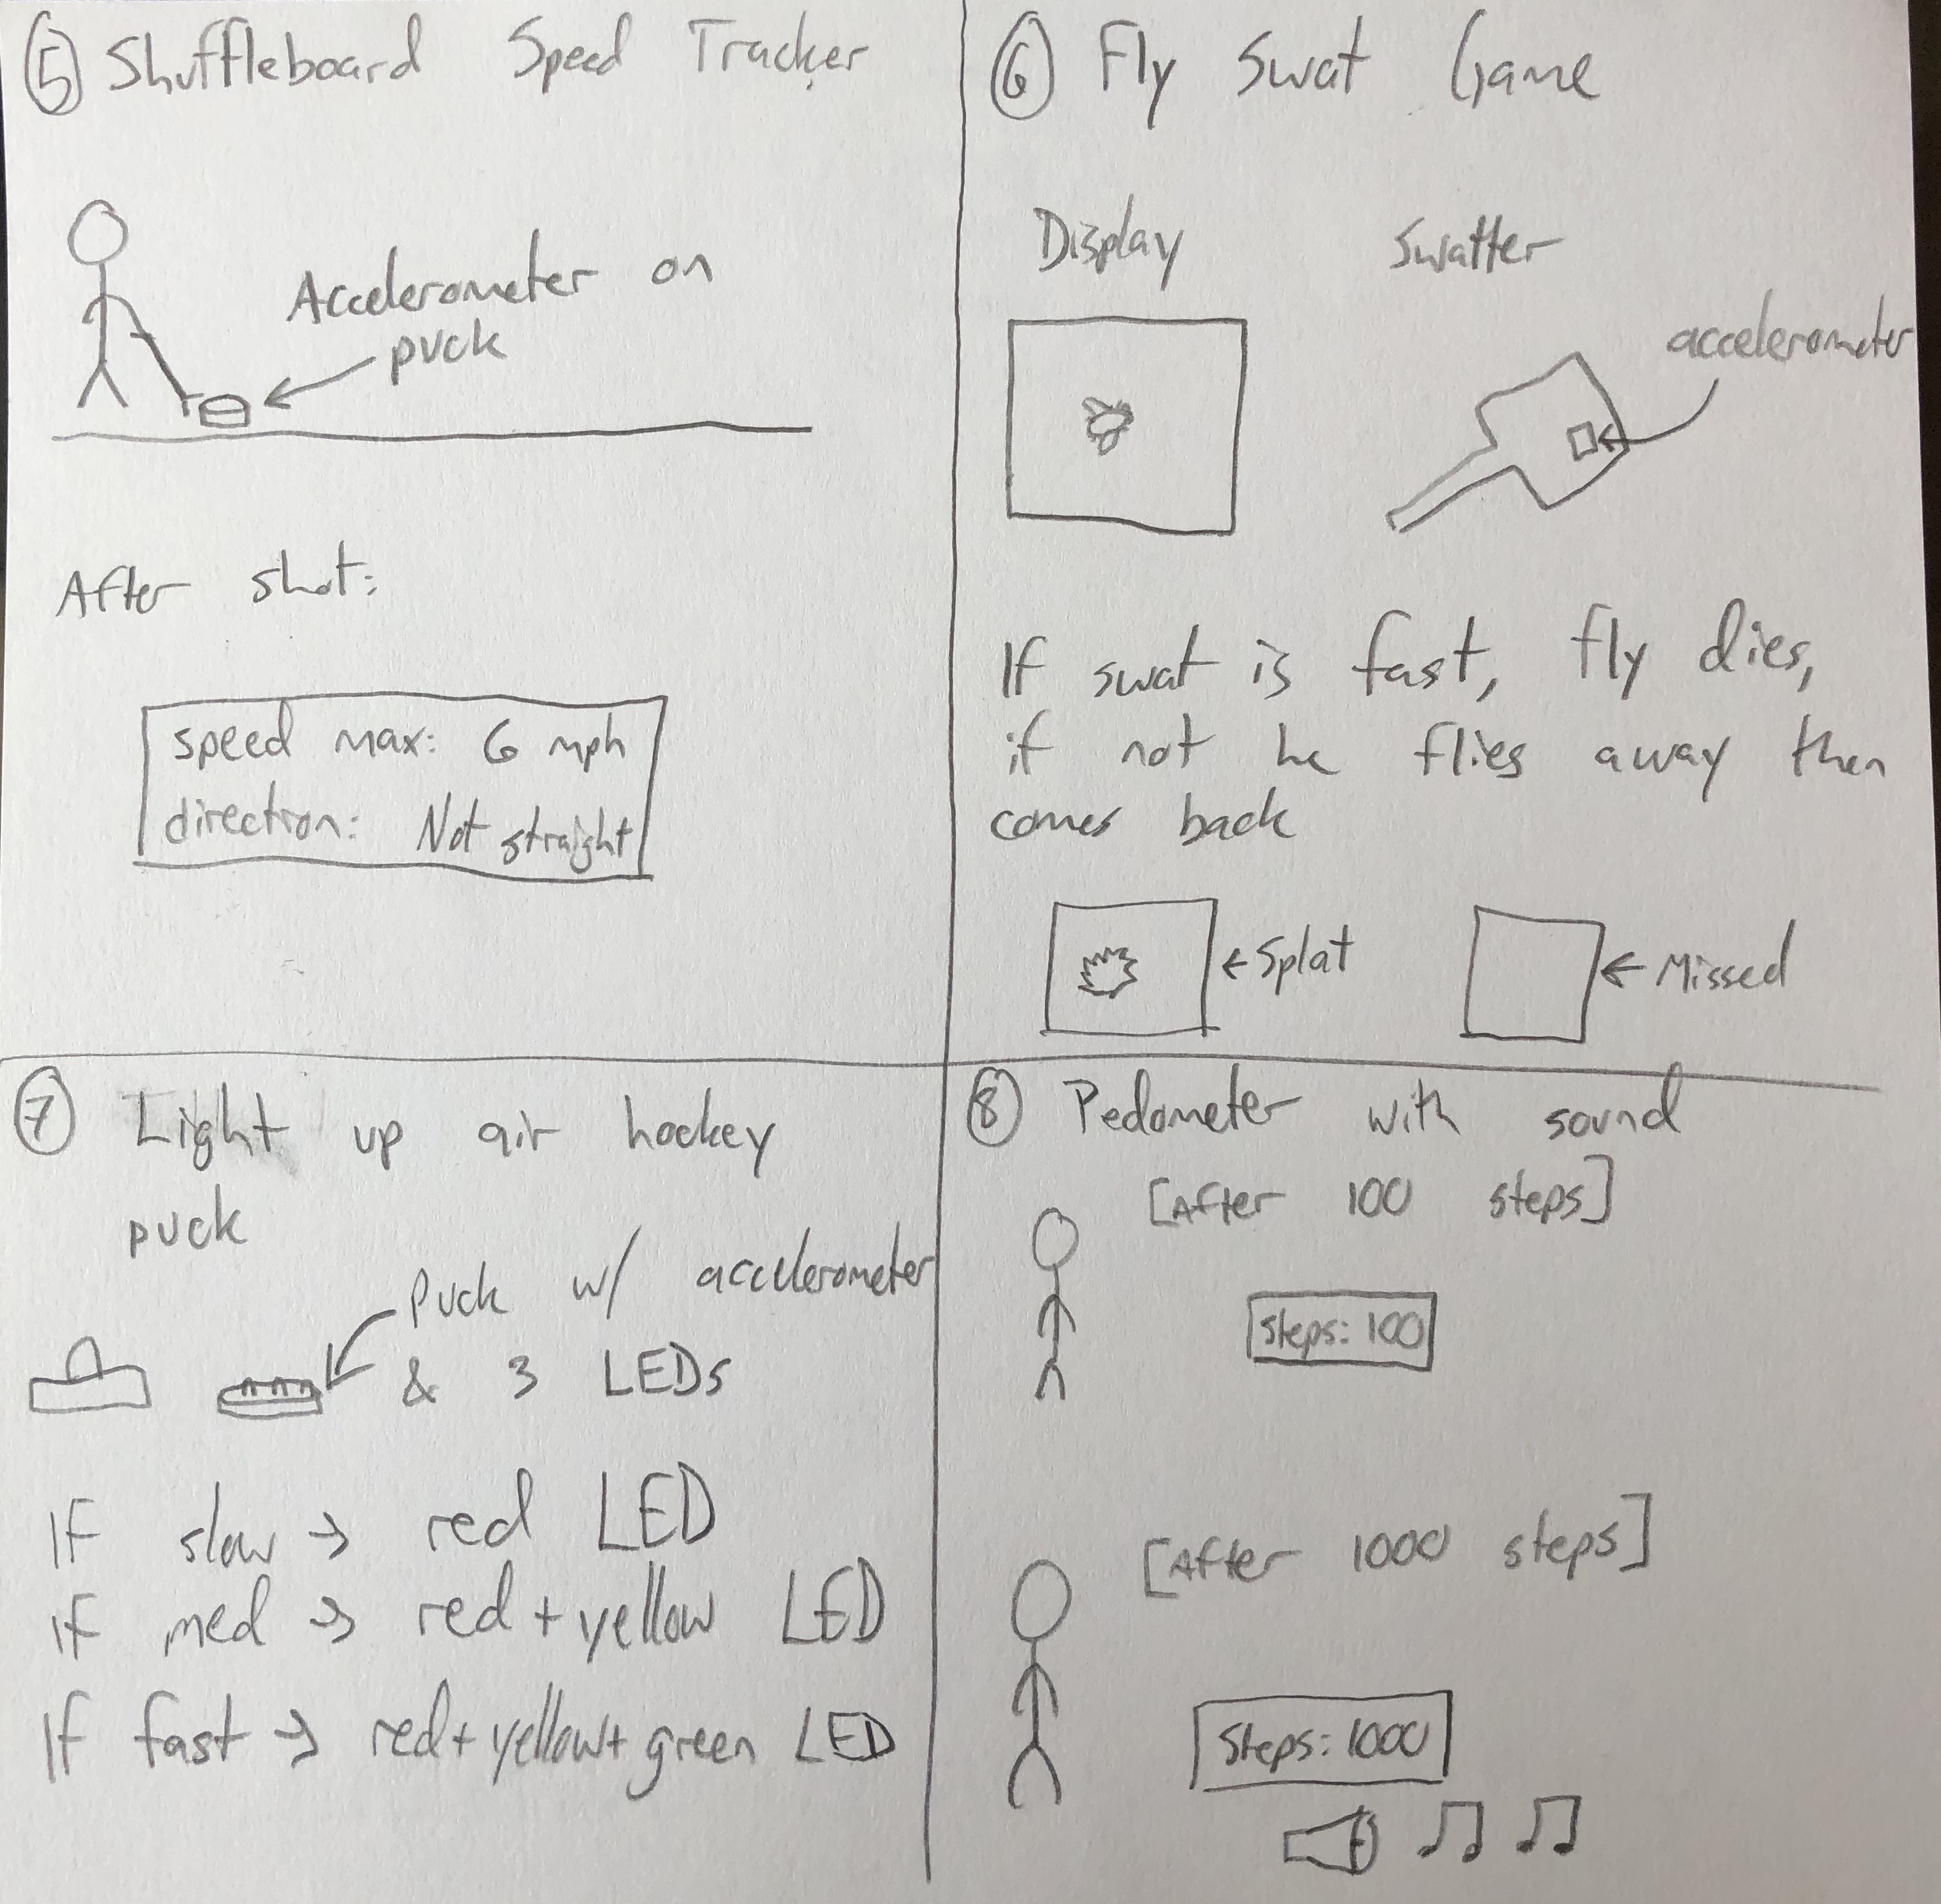 5 Shuffleboard Speed Tracker
Accelerometer on
puck
After shot:
speed max: 6 mph
direction: Not straight
6 Fly Swat Game
Display
Swatter
accelerometer
If swat is fast, fly dies,
if not he flies away then
comes back
←Splat
←Missed
7 Light up air hockey
puck
Puck w/ accelerometer
& 3 LEDs
If slow → red LED
If med → red+yellow LED
If fast → red+yellow+green LED
8 Pedometer with sound
[After 100 steps]
steps: 100
[After 1000 steps]
Steps: 1000